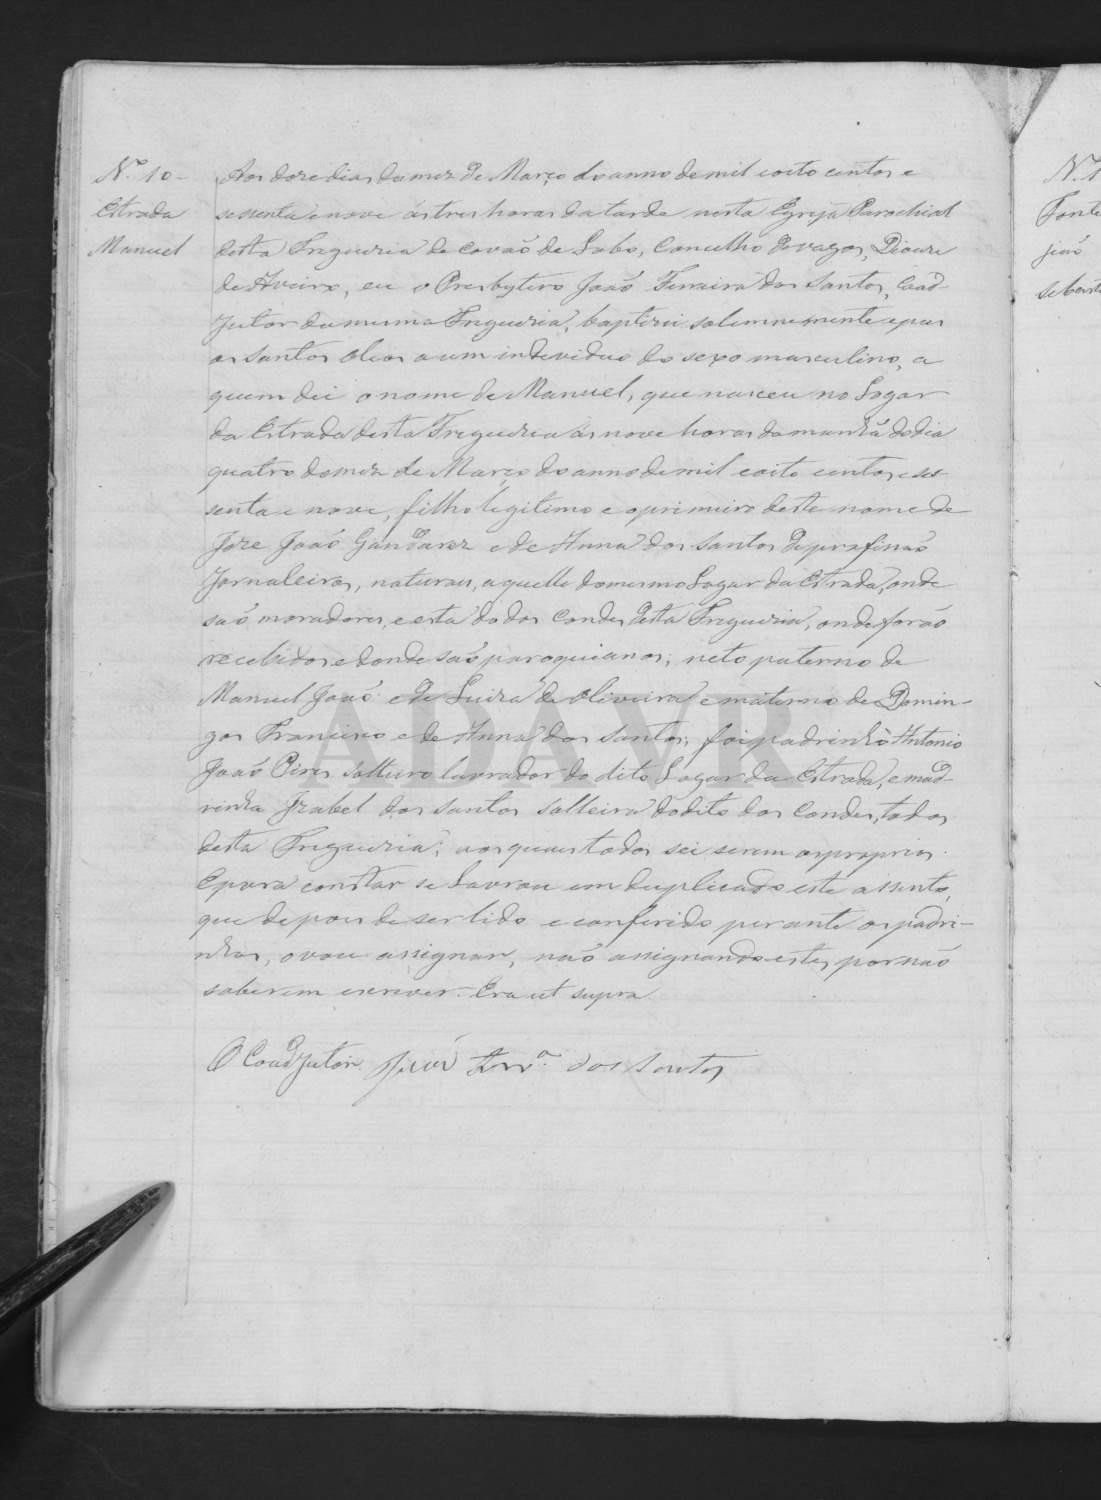 Nº 10-
Estrada
Manuel
Aos doze dias do mez de Março do anno de mil e oito centos e
sessenta e nove ás tres horas da tarde nesta Egreja Parochial
desta Freguezia de Covaõ do Lobo, Concelho de Vagos, Dioceze
de Aveiro, eu o Presbytero Joaõ Ferreira dos Santos, Coad-
jutor da mesma Freguezia, baptizei solemnemente e puz
os Santos Oleos a um individuo do sexo masculino, a
quem dei o nome de Manuel, que nasceu no Logar
da Estrada desta Freguezia ás nove horas da manhã do dia
quatro do mez de Março do anno de mil e oito centos e ses-
senta e nove, filho legitimo e o primeiro deste nome de
Joze Joaõ Gandarez e de Anna dos Santos de profissaõ
Jornaleiros, naturaes, aquelle do mesmo Logar da Estrada, onde
saõ moradores, e esta do dos Condes desta Freguezia, onde foraõ
recebidos e donde saõ paroquianos; neto paterno de
Manuel Joaõ e de Luiza de Oliveira e materno de Domin-
gos Francisco e de Anna dos Santos; foi padrinho Antonio
Joaõ Pires solteiro lavrador do dito Logar da Estrada, e mad-
rinha Izabel dos Santos solteira do dito dos Condes, todos
desta Freguezia; aos quaes todos sei serem os proprios.
E para constar se lavrou em duplicado este assento,
que depois de ser lido e conferido perante os padri-
nhos, o vou assignar, naõ assignando estes por naõ
saberem escrever. Era ut supra.
O Coadjutor Joaõ Frrª. dos Santos
ADAVR
Nº 1
Fonte
Joaõ
Sebasti